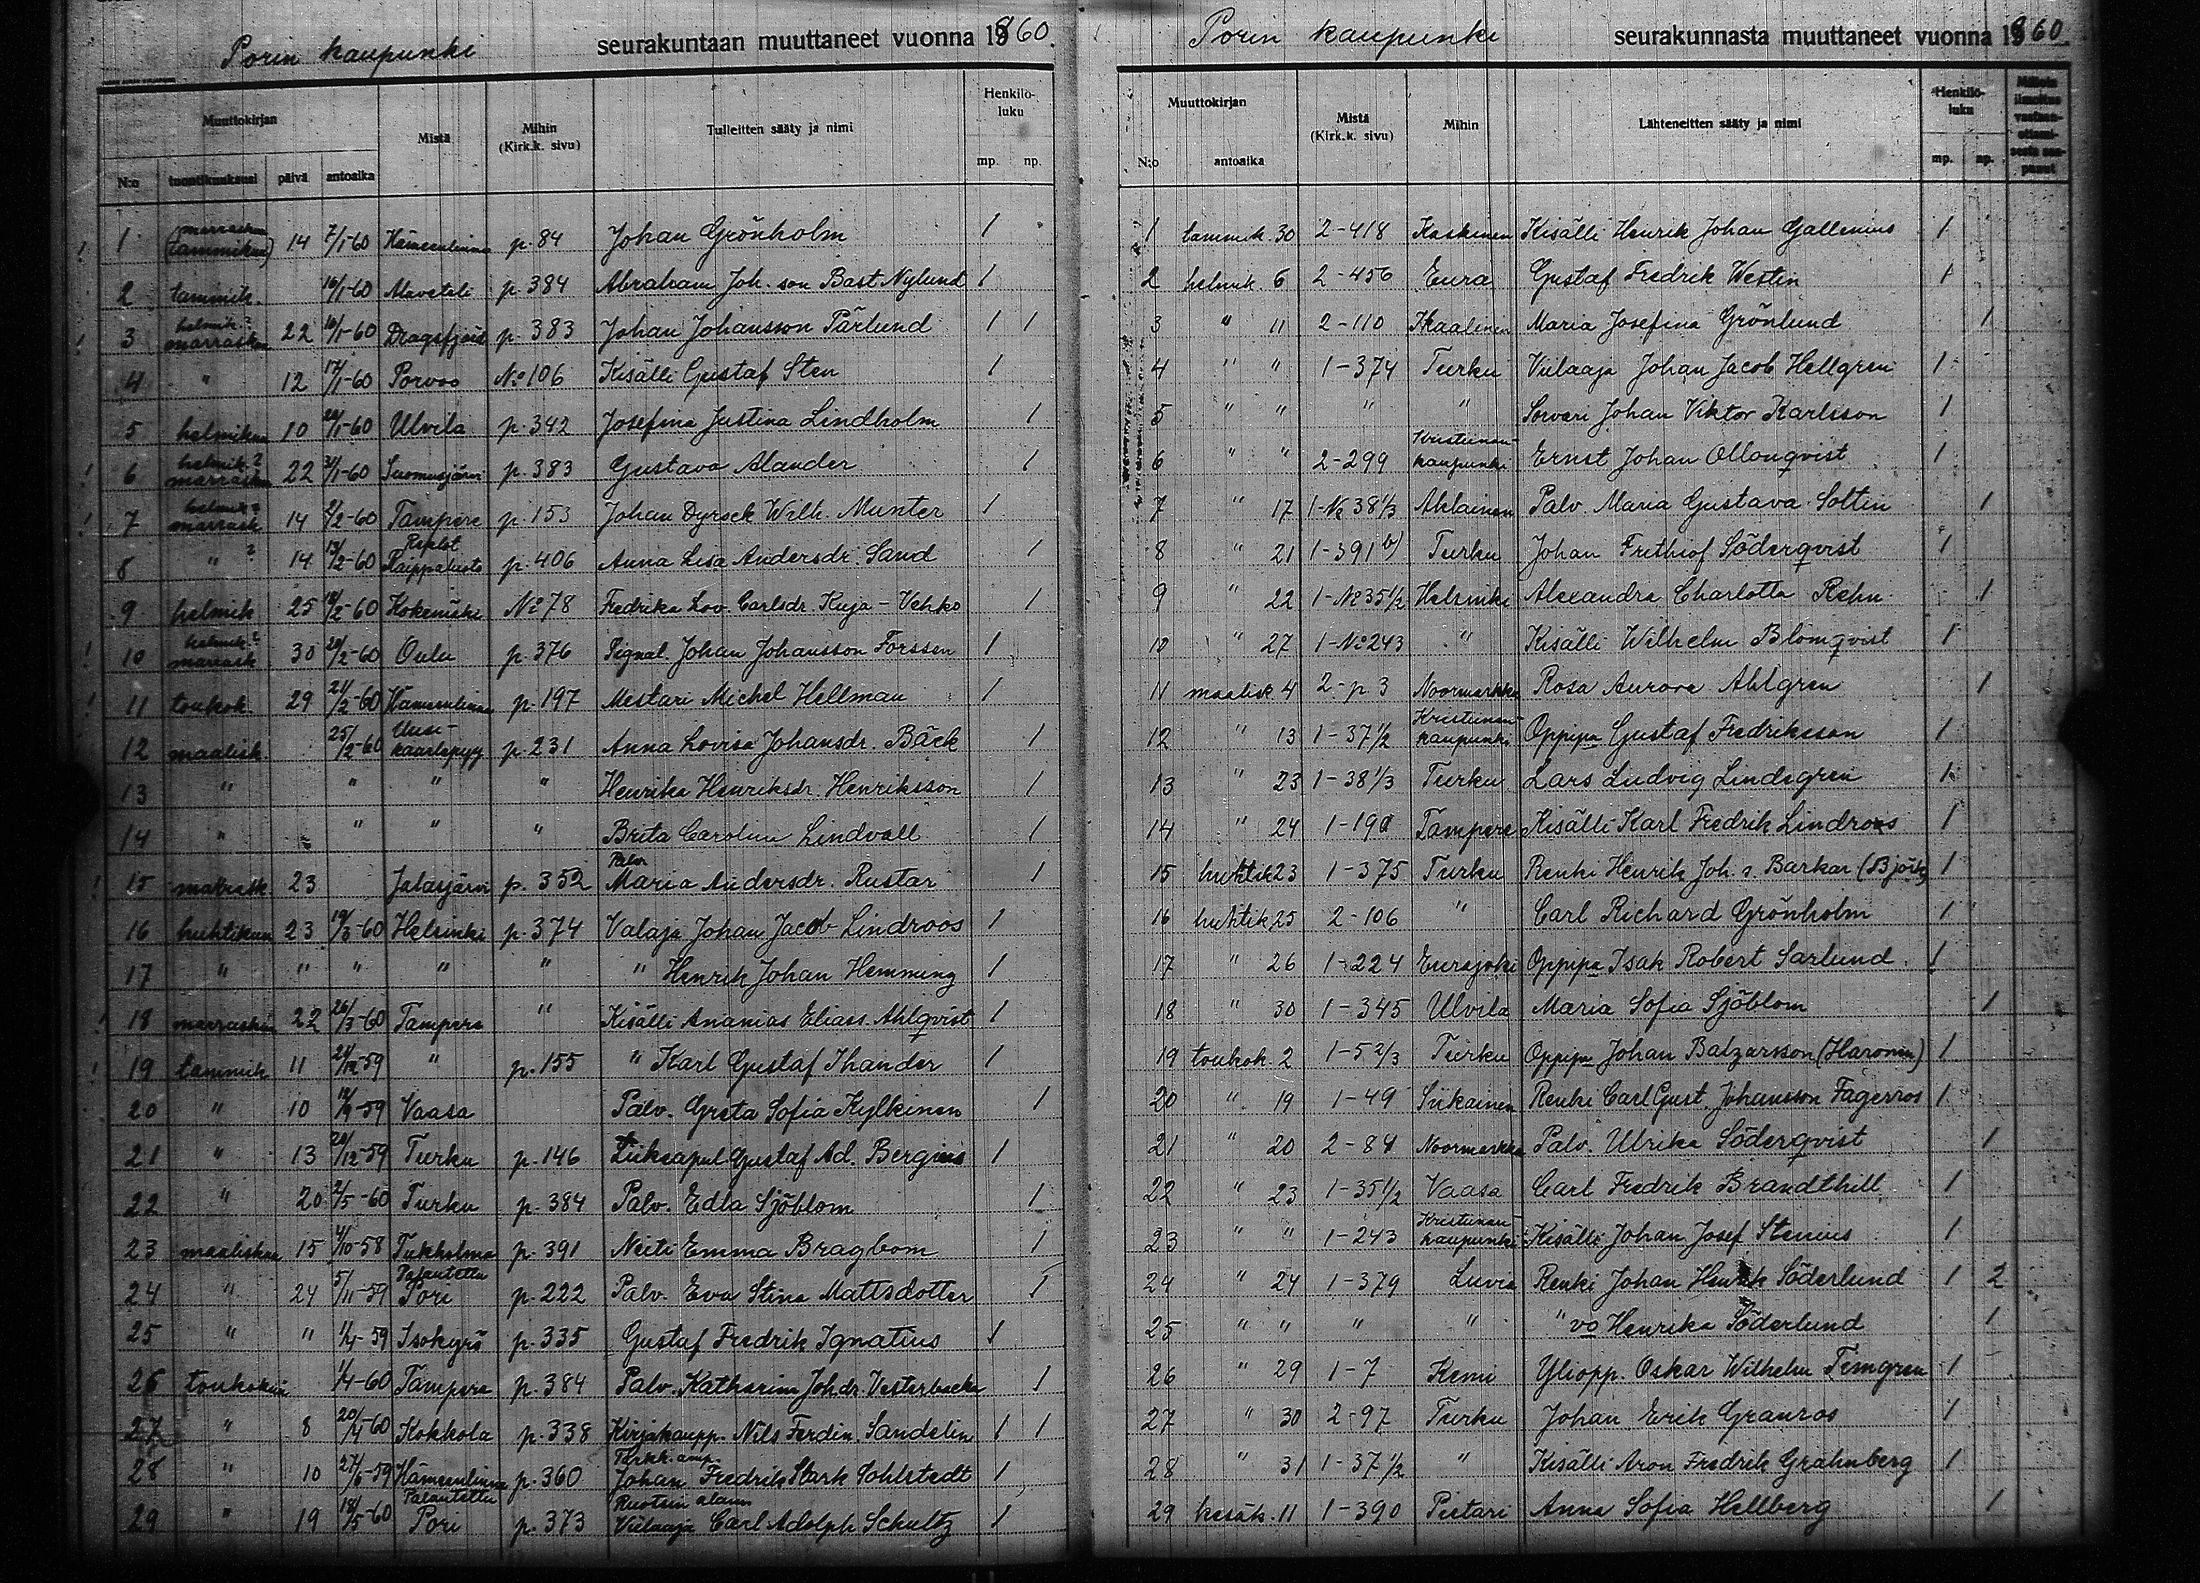 Porin kaupunki seurakuntaan muuttaneet vuonna 1860.
Muuttokirjan Mistä Mihin (Kirk.k. sivu) Tulleitten sääty ja nimi Henkilö-luku
N:o tuontikuukausi päivä antoaika mp. np.
1 marraskuu (tammikuu) 14 7/1-60 Hämeenlinna p. 84 Johan Grönholm 1
2 tammik. 16/1-60 Alaveteli p. 384 Abraham Joh. son Bast Nylund 1
3 helmik.? marraskuu 22 16/1-60 Dragsfjärd p. 383 Johan Johansson Pärlund 1 1
4 " 12 17/1-60 Porvoo No 106 Kisälli Gustaf Sten 1
5 helmikuu 10 /1-60 Ulvila p. 342 Josefina Justina Lindholm 1
6 helmik.? marraskuu 22 31/1-60 Suomusjärvi p. 383 Gustava Alander 1
7 helmik.? marrask 14 2/2-60 Tampere p. 153 Johan Dyrsek Wilh. Munter 1
8 " ? 14 13/2-60 Replot Raippaluoto p. 406 Anna Lisa Andersdr. Sand 1
9 helmik 25 18/2-60 Kokemäki No 78 Fredrika Lov. Carlsdr. Kuja-Vehko 1
10 helmik.? marrask 30 20/2-60 Oulu p. 376 Signal. Johan Johansson Forssen 1
11 toukok. 29 21/2-60 Hämeenlinna p. 197 Mestari Michel Hellman 1
12 maalisk. 25/2-60 Uusi-kaarlepyy p. 231 Anna Lovisa Johansdr. Bäck 1
13 " " " " Henrika Henriksdr. Henriksson 1
14 " " " " Brita Carolina Lindvall 1
15 marrask. 23 Jalasjärvi p. 352 Palv Maria Andersdr. Rustar 1
16 huhtikuu 23 19/3-60 Helsinki p. 374 Valaja Johan Jacob Lindroos 1
17 " " " " " " Henrik Johan Hemming 1
18 marraskuu 22 26/3-60 Tampere " Kisälli Ananias Eliass. Ahlqvist 1
19 tammik 11 21/12-59 " p. 155 " Karl Gustaf Ihander 1
20 " 10 /9-59 Vaasa Palv. Greta Sofia Kylkinen 1
21 " 13 20/12-59 Turku p. 146 Gustaf Ad. Bergius 1
22 " 20 2/5-60 Turku p. 384 Palv. Edla Sjöblom 1
23 maaliskuu 15 4/10-58 Tukholma p. 391 Neiti Emma Bragbom 1
24 " 24 5/11-59 Palautettu Pori p. 222 Palv. Eva Stina Mattsdotter 1
25 " " 1/4-59 Isokyrö p. 335 Gustaf Fredrik Ignatius 1
26 toukokuu 1/4-60 Tampere p. 384 Palv. Katharina Johdr. Vesterbacka 1
27 " 8 20/4-60 Kokkola p. 338 Kirjakaupp. Nils Ferdin. Sandelin 1 1
28 " 10 27/6-59 Hämeenlinna p. 360 Johan Fredrik Stark Sohlstedt 1
29 " 19 18/5-60 Palautettu Pori p. 373 Ruotsin alam. Viilaaja Carl Adolph Schultz 1
Porin kaupunki seurakunnasta muuttaneet vuonna 1860.
Muuttokirjan Mistä (Kirk.k. sivu) Mihin Lähteneitten sääty ja nimi Henkilö-luku
N:o antoaika mp. np.
1 tammik. 30 2-418 Kaskinen Kisälli Henrik Johan Gallenius 1
2 helmik. 6 2-456 Eura Gustaf Fredrik Westin 1
3 " 11 2-110 Ikaalinen Maria Josefina Grönlund 1
4 " " 1-374 Turku Viilaaja Johan Jacob Hellgren 1
5 " " " " Sorvari Johan Viktor Karlsson 1
6 " " 2-299 Kristiinan-kaupunki Ernst Johan Ollonqvist 1
7 " 17 1-No 38 1/3 Ahlainen Palv. Maria Gustava Soltin 1
8 " 21 1-391 b) Turku Johan Frithiof Söderqvist 1
9 " 22 1-No 35 1/2 Helsinki Alexandra Charlotta Rehn 1
10 " 27 1-No 243 " Kisälli Wilhelm Blomqvist 1
11 maalisk 4 2-p 3 Noormarkku Rosa Aurora Ahlgren 1
12 " 13 1-37 1/2 Kristiinan-kaupunki Oppipa Gustaf Fredriksson 1
13 " 23 1-38 1/3 Turku Lars Ludvig Lindegren 1
14 " 24 1-190 Tampere Kisälli Karl Fredrik Lindroos 1
15 huhtik 23 1-375 Turku Renki Henrik Joh. s. Barkar (Björk) 1
16 huhtik 25 2-106 " Carl Richard Grönholm 1
17 " 26 1-224 Eurajoki Oppipa Isak Robert Sarlund 1
18 " 30 1-345 Ulvila Maria Sofia Sjöblom 1
19 toukok. 2 1-5 2/3 Turku Oppipa Johan Balzarsson (Haronen) 1
20 " 19 1-49 Siikainen Renki Carl Gust. Johansson Fagerros 1
21 " 20 2-84 Noormarkku Palv. Ulrika Söderqvist 1
22 " 23 1-35 1/2 Vaasa Carl Fredrik Brandthill 1
23 " " 1-243 Kristiinan-kaupunki Kisälli Johan Josef Stenius 1
24 " 24 1-379 Luvia Renki Johan Henrik Söderlund 1 2
25 " " " " " vo Henrika Söderlund 1
26 " 29 1-7 Kemi Yliopp. Oskar Wilhelm Temgren 1
27 " 30 2-97 Turku Johan Erik Granros 1
28 " 31 1-37 1/2 " Kisälli Aron Fredrik Grahnberg 1
29 kesäk. 11 1-390 Pietari Anna Sofia Hellberg 1